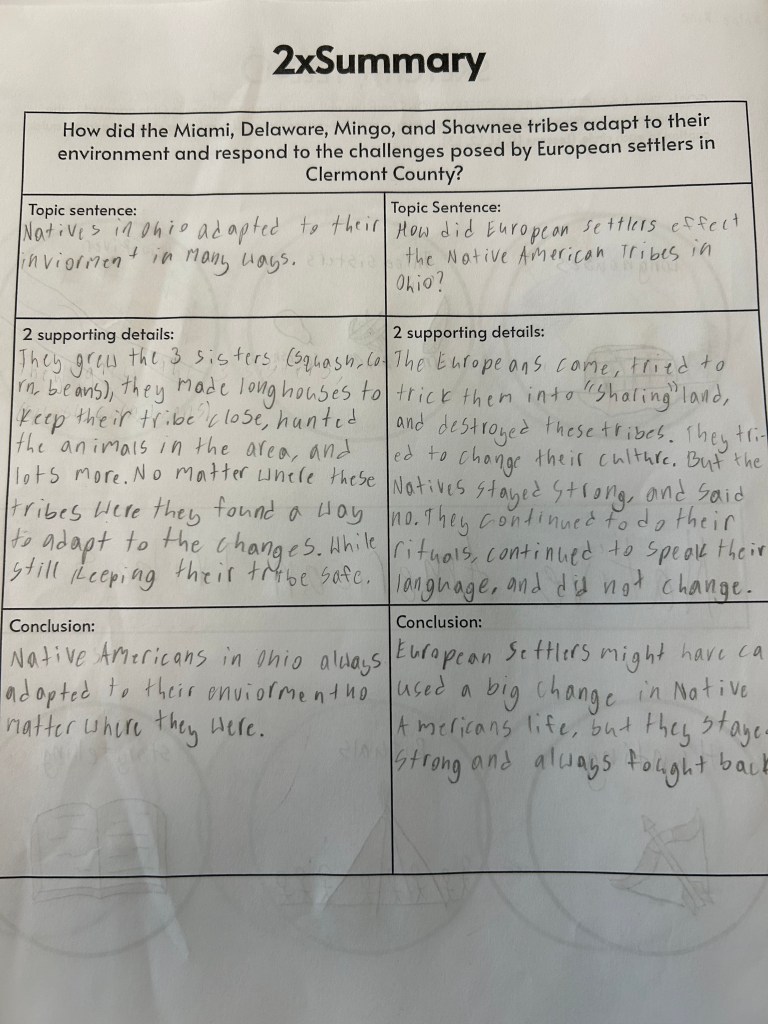 2xSummary
How did the Miami, Delaware, Mingo, and Shawnee tribes adapt to their
environment and respond to the challenges posed by European settlers in
Clermont County?
Topic sentence:
Natives in Ohio adapted to their
inviorment in many ways.
Topic Sentence:
How did European settlers effect
the Native American Tribes in
Ohio?
2 supporting details:
They grew the 3 sisters (squash, co-
rn, beans), they made longhouses to
keep their tribe close, hunted
the animals in the area, and
lots more. No matter where these
tribes were they found a way
to adapt to the changes. While
still keeping their tribe safe.
2 supporting details:
The Europeans came, tried to
trick them into "sharing" land,
and destroyed these tribes. They tri-
ed to change their culture. But the
Natives stayed strong, and said
no. They continued to do their
rituals, continued to speak their
language, and did not change.
Conclusion:
Native Americans in Ohio always
adapted to their enviorment no
matter where they were.
Conclusion:
European Settlers might have ca
used a big change in Native
Americans life, but they staye
strong and always fought back